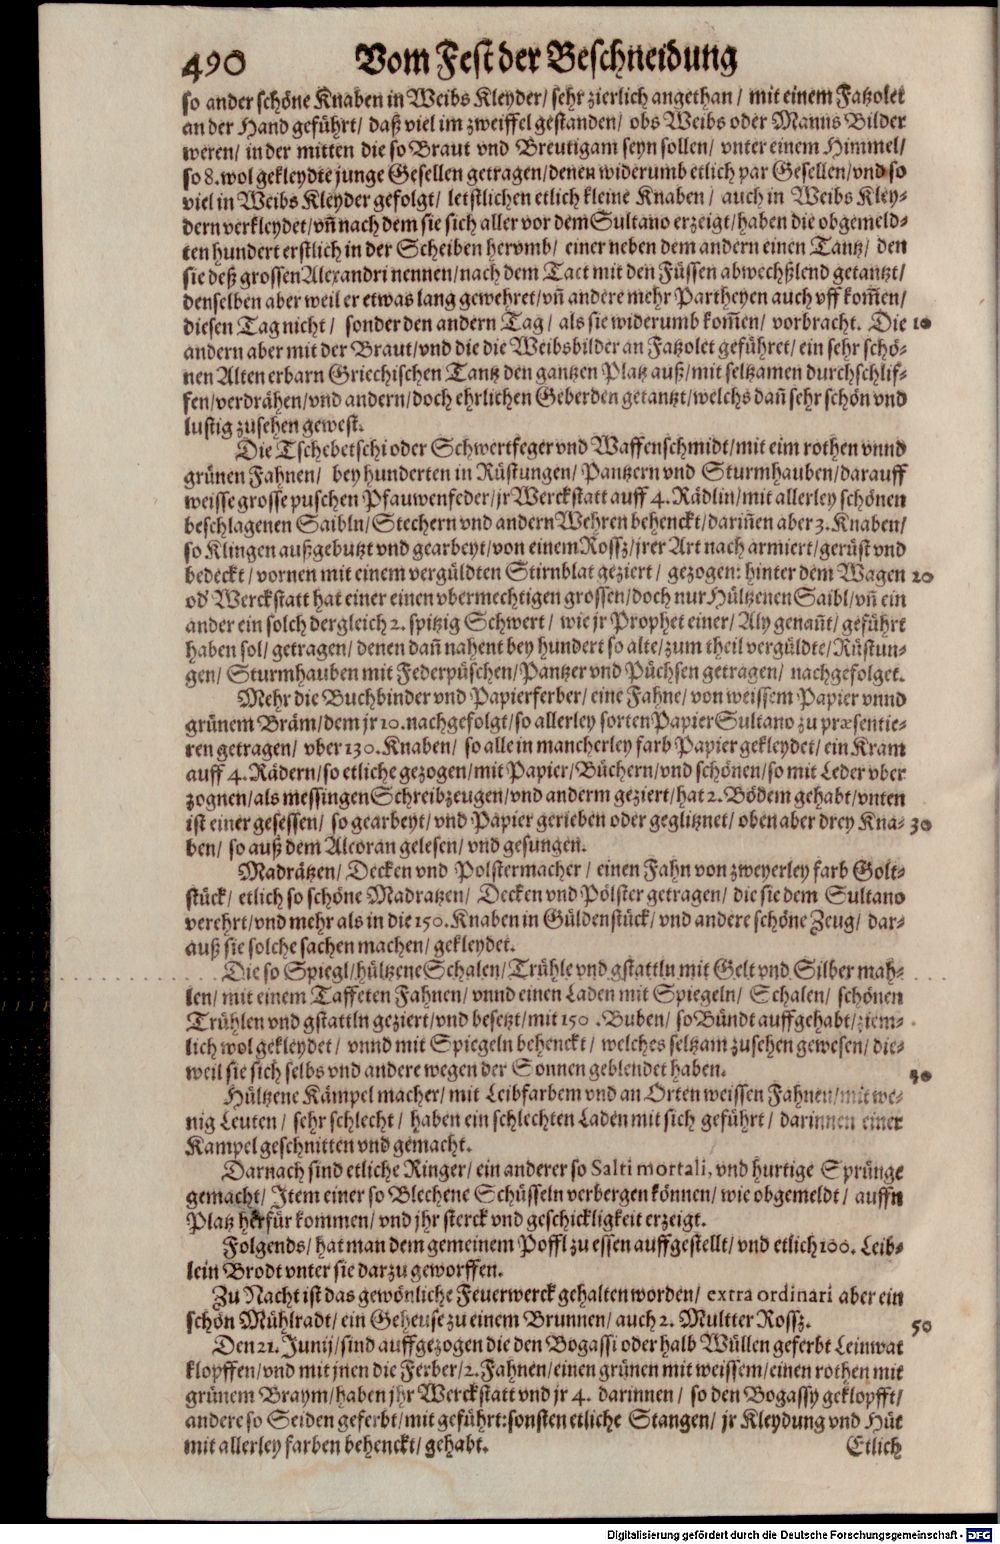 490 Vom Fest der Beschneidung
so ander schöne Knaben in Weibs Kleyder/ sehr zierlich angethan/ mit einem Fatzolet
an der Hand geführt/ daß viel im zweiffel gestanden/ obs Weibs oder Manns Bilder
weren/ in der mitten die so Braut vnd Breutigam seyn sollen/ vnter einem Himmel/
so 8. wol gekleydte junge Gesellen getragen/ denen widerumb etlich par Gesellen/ vnd so
viel in Weibs Kleyder gefolgt/ letstlichen etlich kleine Knaben/ auch in Weibs Kley-
dern verkleydet/ vn̄ nach dem sie sich aller vor dem Sultano erzeigt/ haben die obgemeld-
ten hundert erstlich in der Scheiben hervmb/ einer neben dem andern einen Tantz/ den
sie deß grossen Alexandri nennen/ nach dem Tact mit den Füssen abwechßlend getantzt/
denselben aber weil er etwas lang gewehret/ vn̄ andere mehr Partheyen auch vff kom̄en/
diesen Tag nicht/ sonder den andern Tag/ als sie widerumb kom̄en/ vorbracht. Die 10
andern aber mit der Braut/ vnd die die Weibsbilder an Fatzolet geführet/ ein sehr schö-
nen Alten erbarn Griechischen Tantz den gantzen Platz auß/ mit seltzamen durchschlif-
fen/ verdrähen/ vnd andern/ doch ehrlichen Geberden getantzt/ welchs dan̄ sehr schön vnd
lustig zusehen gewest.
Die Tschebetschi oder Schwertfeger vnd Waffenschmidt/ mit eim rothen vnnd
grünen Fahnen/ bey hunderten in Rüstungen/ Pantzern vnd Sturmhauben/ darauff
weisse grosse puschen Pfauwenfeder/ jr Werckstatt auff 4. Rädlin/ mit allerley schönen
beschlagenen Saibln/ Stechern vnd andern Wehren behenckt/ darin̄en aber 3. Knaben/
so Klingen außgebutzt vnd gearbeyt/ von einem Rossz/ jrer Art nach armiert/ gerüst vnd
bedeckt/ vornen mit einem vergüldten Stirnblat geziert/ gezogen: hinter dem Wagen 20
od' Werckstatt hat einer einen vbermechtigen grossen/ doch nur Hültzenen Saibl/ vn̄ ein
ander ein solch dergleich 2. spitzig Schwert/ wie jr Prophet einer/ Aly genan̄t/ geführt
haben sol/ getragen/ denen dan̄ nahent bey hundert so alte/ zum theil vergüldte/ Rüstun-
gen/ Sturmhauben mit Federpüschen/ Pantzer vnd Püchsen getragen/ nachgefolget.
Mehr die Buchbinder vnd Papierferber/ eine Fahne/ von weissem Papier vnnd
grünem Bräm/ dem jr 10. nachgefolgt/ so allerley sorten Papier Sultano zu præsentie-
ren getragen/ vber 130. Knaben/ so alle in mancherley farb Papier gekleydet/ ein Kram
auff 4. Rädern/ so etliche gezogen/ mit Papier/ Büchern/ vnd schönen/ so mit Leder vber
zognen/ als messingen Schreibzeugen/ vnd anderm geziert/ hat 2. Bödem gehabt/ vnten
ist einer gesessen/ so gearbeyt/ vnd Papier gerieben oder geglitznet/ oben aber drey Kna- 30
ben/ so auß dem Alcoran gelesen/ vnd gesungen.
Madrätzen/ Decken vnd Polstermacher/ einen Fahn von zweyerley farb Golt-
stück/ etlich so schöne Madratzen/ Decken vnd Pölster getragen/ die sie dem Sultano
verehrt/ vnd mehr als in die 150. Knaben in Güldenstück/ vnd andere schöne Zeug/ dar-
auß sie solche sachen machen/ gekleydet.
Die so Spiegl/ hültzene Schalen/ Trühle vnd gstattln mit Gelt vnd Silber mah-
len/ mit einem Taffeten Fahnen/ vnnd einen Laden mit Spiegeln/ Schalen/ schönen
Trühlen vnd gstattln geziert/ vnd besetzt/ mit 150. Buben/ so Bündt auffgehabt/ ziem-
lich wol gekleydet/ vnnd mit Spiegeln behenckt/ welches seltzam zusehen gewesen/ die-
weil sie sich selbs vnd andere wegen der Sonnen geblendet haben.
Hültzene Kämpel macher/ mit Leibfarbem vnd an Orten weissen Fahnen/ mit we-
nig Leuten/ sehr schlecht/ haben ein schlechten Laden mit sich geführt/ darinnen einer
Kampel geschnitten vnd gemacht.
Darnach sind etliche Ringer/ ein anderer so Salti mortali, vnd hurtige Sprünge
gemacht/ Item einer so Blechene Schüsseln verbergen können/ wie obgemeldt/ auffn
Platz herfür kommen/ vnd jhr sterck vnd geschickligkeit erzeigt.
Folgends/ hat man dem gemeinem Poffl zu essen auffgestellt/ vnd etlich 100. Leib-
lein Brodt vnter sie darzu geworffen.
Zu Nacht ist das gewönliche Feuerwerck gehalten worden/ extra ordinari aber ein
schön Mühlradt/ ein Geheuse zu einem Brunnen/ auch 2. Multter Rossz. 50
Den 21. Junij/ sind auffgezogen die den Bogassi oder halb Wüllen geferbt Leinwat
klopffen/ vnd mit jnen die Ferber/ 2. Fahnen/ einen grünen mit weissem/ einen rothen mit
grünem Braym/ haben jhr Werckstatt vnd jr 4. darinnen/ so den Bogassy geklopfft/
andere so Seiden geferbt/ mit geführt: sonsten etliche Stangen/ jr Kleydung vnd Hüt
mit allerley farben behenckt/ gehabt. Etlich
Digitalisierung gefördert durch die Deutsche Forschungsgemeinschaft - DFG